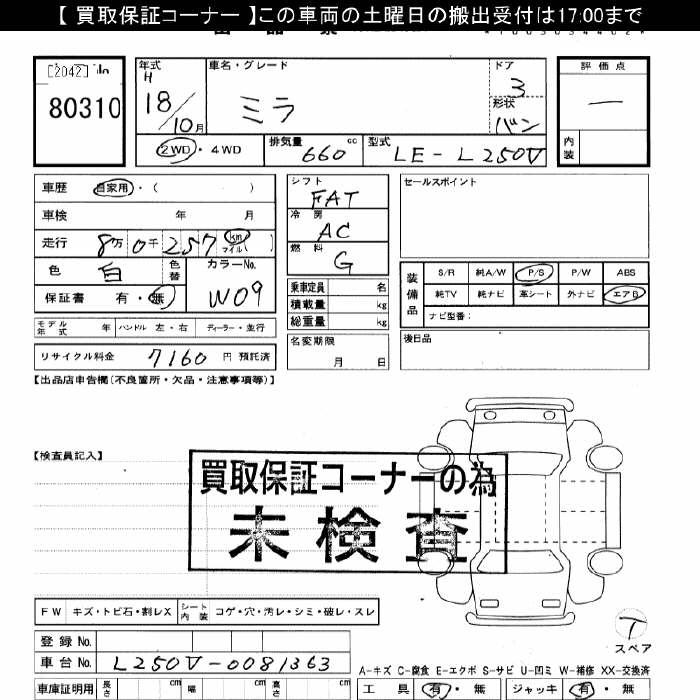 【 買取保証コーナー 】この車両の土曜日の搬出受付は17:00まで
[2042] No
80310
年式 H
18/10月
車名・グレード
ミラ
ドア
3
形状
バン
評価点
―
内装
2WD・4WD
排気量 660 cc
型式 LE-L250V
車歴 自家用・( )
車検 年 月
走行 8万0千257 km マイル( )
色 白 色替
カラーNo. W09
保証書 有・無
モデル年式 年 ハンドル 左・右 ディーラー・並行
リサイクル料金 7160 円 預託済
シフト FAT
冷房 AC
燃料 G
乗車定員 名
積載量 kg
総重量 kg
名変期限
月 日
セールスポイント
装備品
S/R 純A/W P/S P/W ABS
純TV 純ナビ 革シート 外ナビ エアB
ナビ型番:
後日品
【出品店申告欄(不良箇所・欠品・注意事項等)】
【検査員記入】
買取保証コーナーの為
未検査
FW キズ・トビ石・割レX シート内装 コゲ・穴・汚レ・シミ・破レ・スレ
登録No.
車台No. L250V-0081363
車庫証明用 長さ cm 幅 cm 高さ cm
T
スペア
A-キズ C-腐食 E-エクボ S-サビ U-凹ミ W-補修 XX-交換済
工具 有・無 ジャッキ 有・無